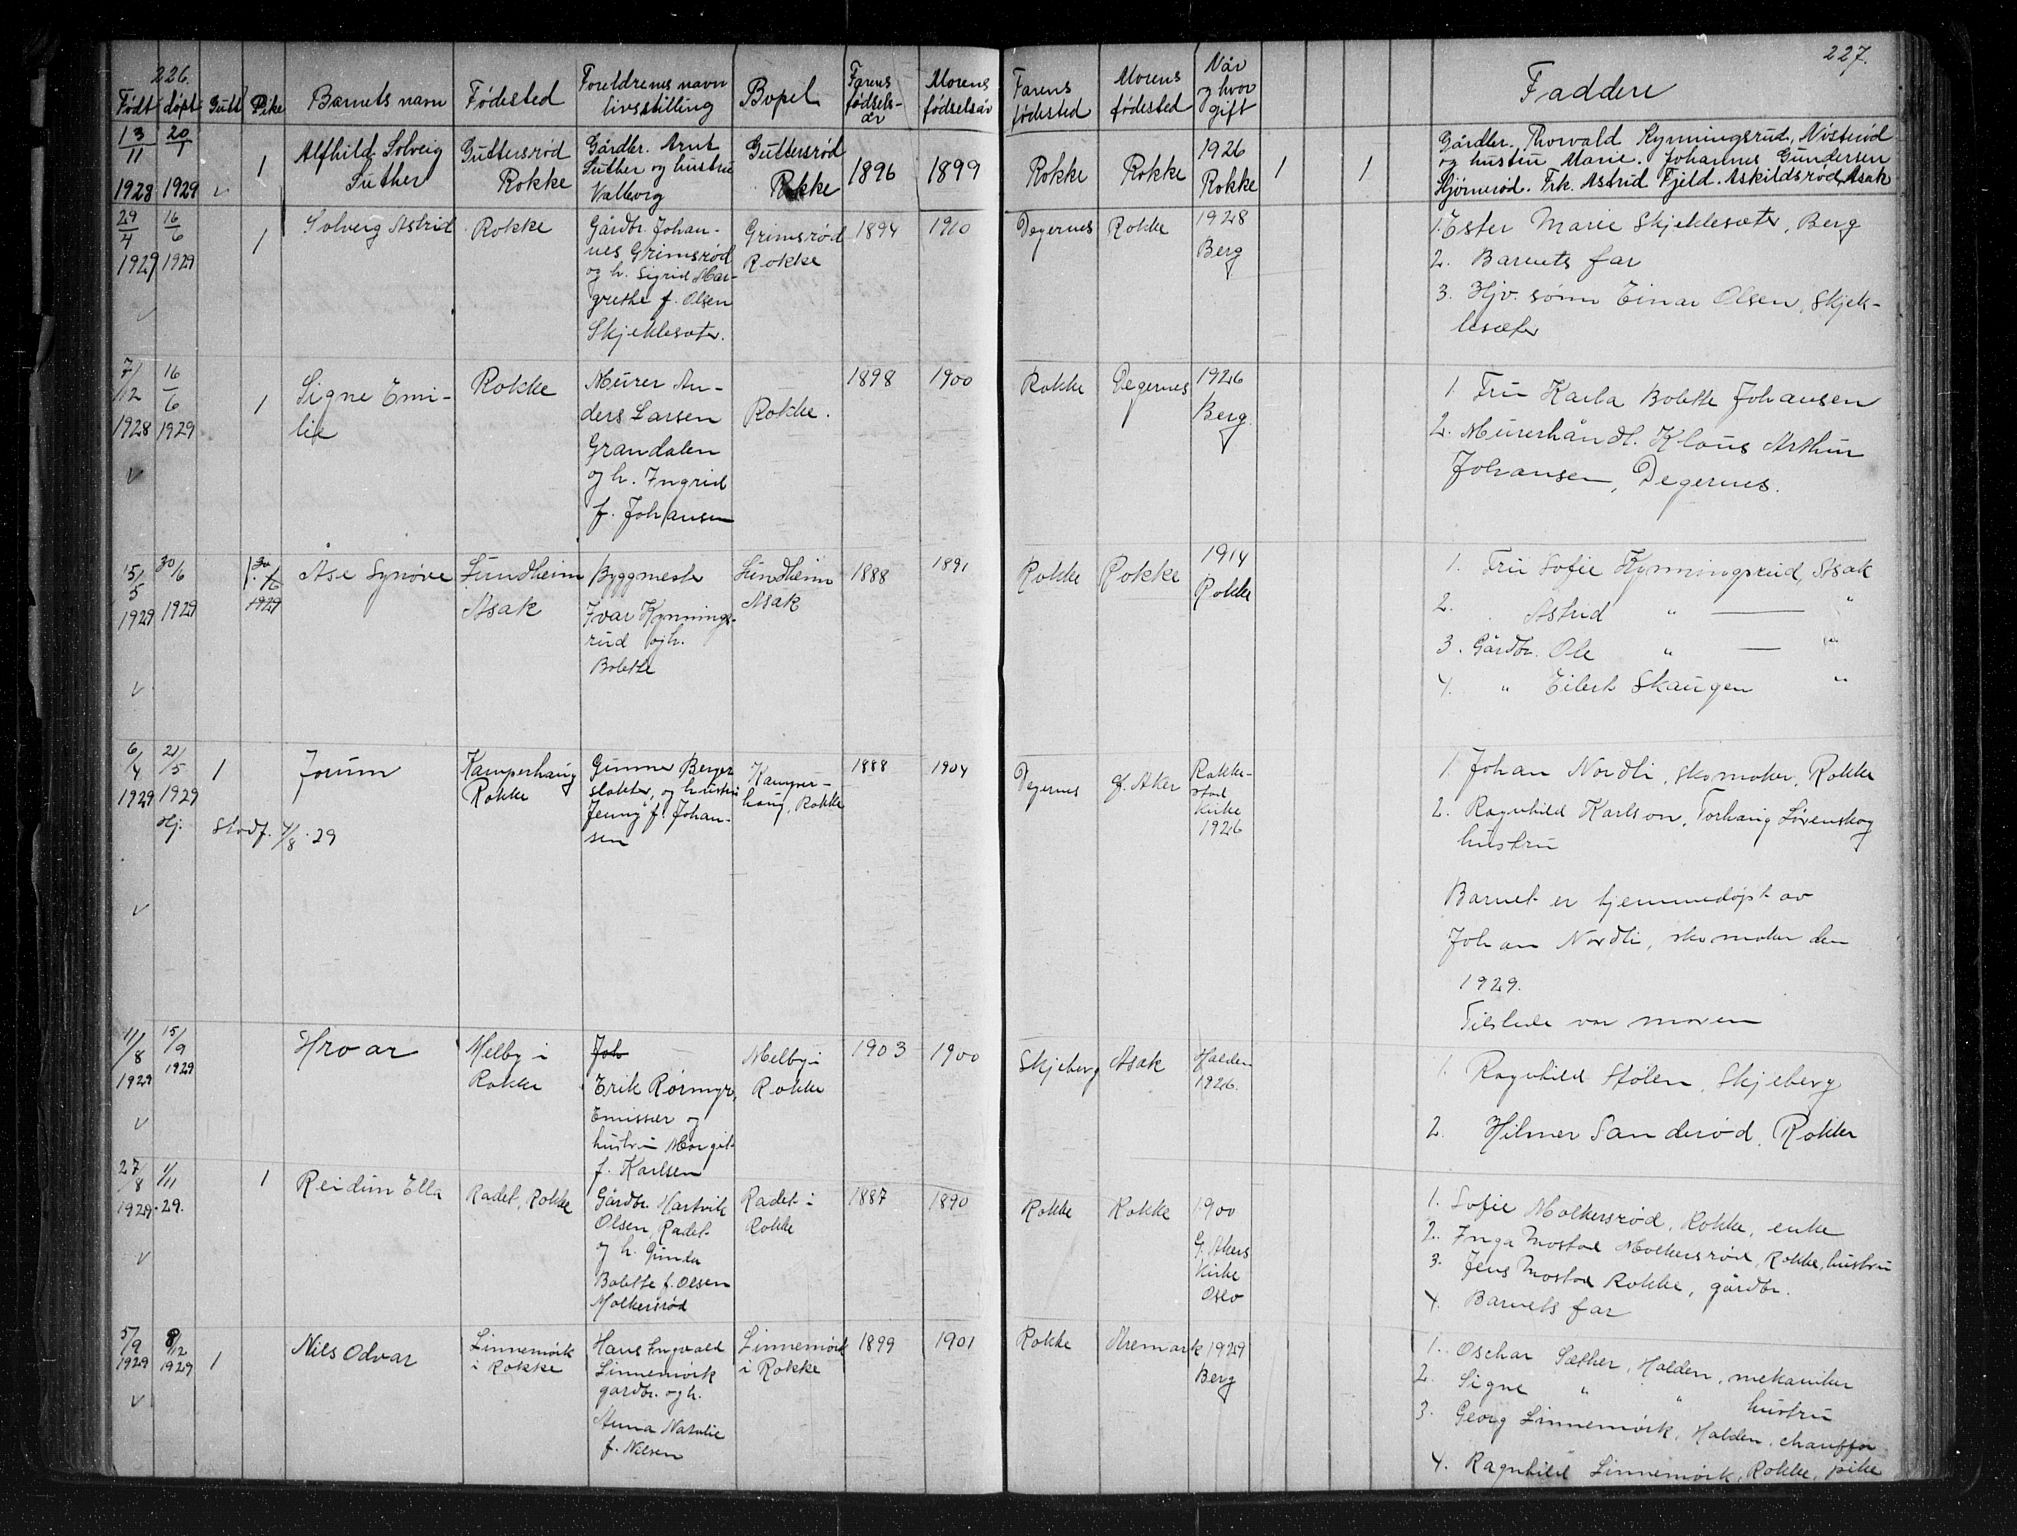 226.
Født døpt Gutt Pike Barnets navn Fødested Foreldrenes navn livsstilling Bopel Farens fødsels-år Morens fødselsår
13/11 1928 20/1 1929 1 Alfhild Solveig Guttersrød Gårdbr. Arnt Guttersrød 1896 1899
Suther Rokke Suther og hustru Rokke
Valborg
29/4 1929 16/6 1929 1 Solveig Astrid Rokke Gårdbr. Johan- Grimsrød 1894 1910
nes Grimsrød Rokke
og h. Sigrid Mar-
grethe f. Olsen
Skjeklesæter.
7/12 1928 16/6 1929 1 Signe Emi- Rokke Murer An- Rokke. 1898 1900
lie ders Larsen
Grandalen
og h. Ingrid
f. Johansen
15/5 1929 30/6 1929 1. 30/6 1929 Åse Synøve Sundheim Byggmester Sundheim 1888 1891
Asak Ivar Kynnings- Asak
rud og h.
Bolette
6/4 1929 21/5 1929 1 Jorum Kamperhaug Gunnar Berger Kamper- 1888 1904
Rokke slakter, og hustru haug, Rokke
Hj. Stadf. 4/8.29 Jenny f. Johan-
sen
11/8 1929 15/9 1929 Hroar Melby i Joh Melby i 1903 1900
Rokke Erik Rørmyr, Rokke
Emissær og
hustru Margit
f. Karlsen
27/8 1929 1/11 29. 1 Reidun Ella Radet, Rokke Gårdbr. Hartvik Radet i 1887 1890
Olsen, Radet Rokke
og h. Gunda
Bolette f. Olsen
Molkersrød
5/9 1929 8/12 1929 1 Nils Odvar Linnemørk Hans Ingvald Linnemørk 1899 1901
i Rokke Linnemørk i Rokke
gårdbr. og h.
Anna Natalie
f. Nilsen
227.
Farens fødested Morens fødested Når og hvor gift Faddere
Rokke Rokke 1926 Rokke 1 1 Gårdbr. Thorvald Kynningsrud, Nøsterød
og hustru Marie. Johannes Gundersen
Hjørnerød. Frk. Astrid Fjeld. Askildsrød, Asak
Degernes Rokke 1928 Berg 1. Ester Marie Skjeklesæter, Berg
2. Barnets far
3. Hjv. sønn Einar Olsen, Skjek-
lesæter
Rokke Degernes 1926 Berg 1. Fru Karla Bolette Johansen
2. Murerhåndl. Klaus Arthur
Johansen, Degernes.
Rokke Rokke 1914 Rokke 1. Fru Sofie Kynningsrud, Asak
2. Astrid " — "
3. Gårdbr. Ole " — "
4. " Eilert Skaugen "
Degernes gl. Aker Rakke-stad kirke 1926 1. Johan Nordli, skomaker, Rokke
2. Ragnhild Karlson, Torhaug Lørenskog
hustru
Barnet er hjemmedøpt av
Johan Nordli, skomaker den
1929.
Tilstede var moren
Skjeberg Asak Halden 1926. 1. Ragnhild Stølen, Skjeberg
2. Hilmer Sanderød, Rokke
Rokke Rokke 1900 G. Akers kirke Oslo 1. Sofie Molkersrød, Rokke, enke
2. Inga Mostad Molkersrød, Rokke, hustru
3. Jens Mostad Rokke, gårdbr.
4. Barnets far
Rokke Aremark 1929 Berg 1. Oschar Sæther, Halden, mekaniker
2. Signe " " hustru
3. Georg Linnemørk, Halden, chauffør
4. Ragnhild Linnemørk, Rokke, pike